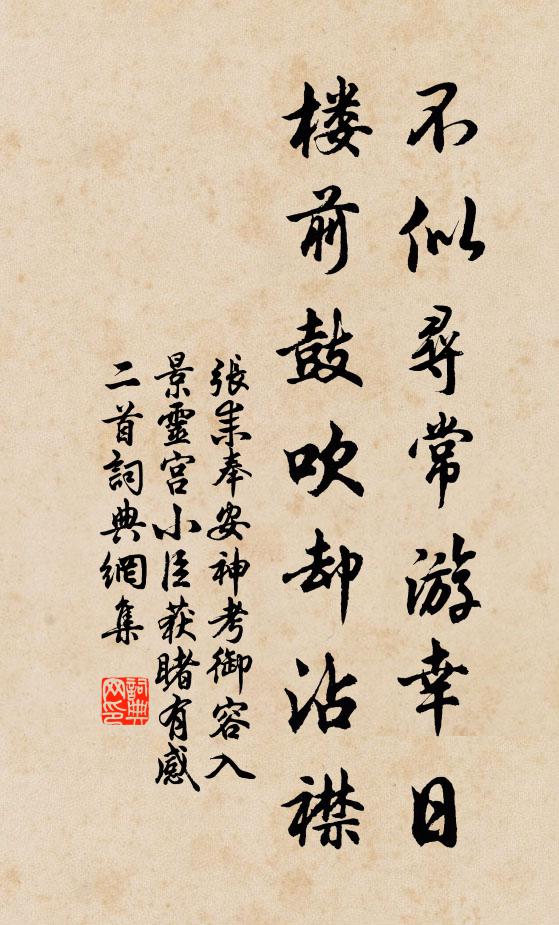 不似尋常游幸日
楼前鼓吹却沾襟
張耒奉安神考御容入
景靈宮小臣获睹有感
二首詞典網集
詞典網印